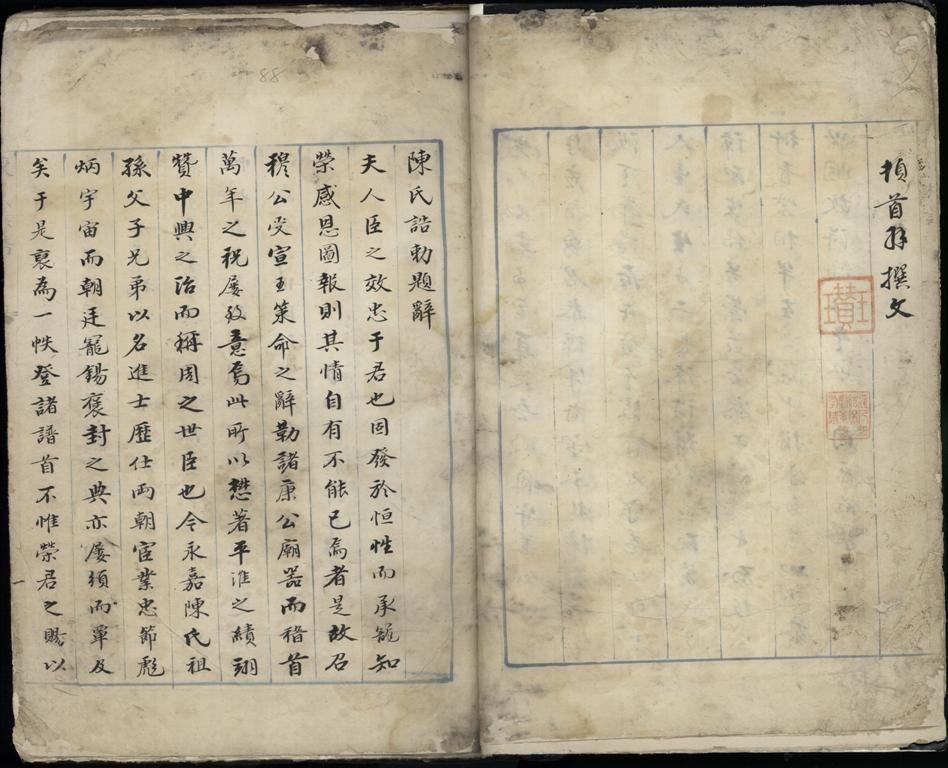 頓首拜撰文
陳氏誥勅題辭
夫人臣之效忠于君也固發於恒性而承寵知
榮感恩圖報則其情自有不能已焉者是故召
穆公受宣王策命之辭勒諸康公廟器而稽首
萬年之祝屢致意焉此所以懋著平淮之績翊
贊中興之治而稱周之世臣也今永嘉陳氏祖
孫父子兄弟以名進士歷仕両朝宦業忠節彪
炳宇宙而朝廷寵錫褒封之典亦屢須而單及
矣于是裒為一帙登諸譜首不惟榮君之賜以
88